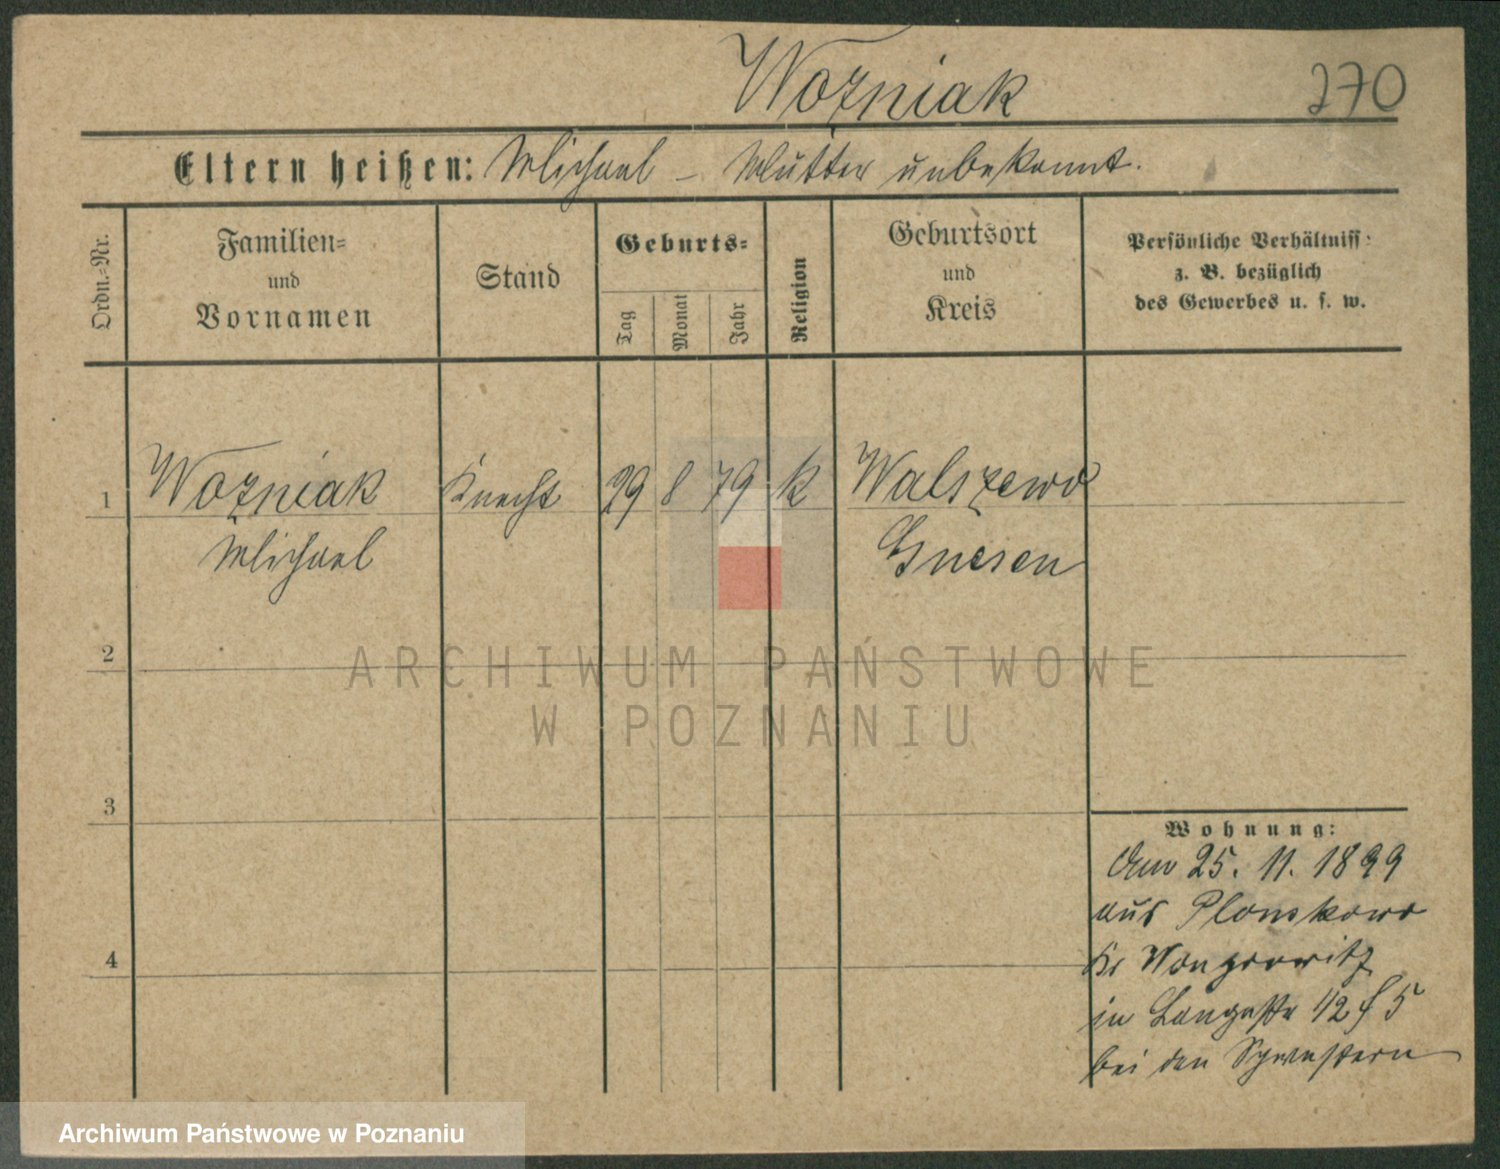 Woźniak
270
Eltern heißen: Michael – Mutter unbekannt.
Ordn.-Nr.
Familien-
und
Vornamen
Stand
Geburts-
Tag
Monat
Jahr
Religion
Geburtsort
und
Kreis
Persönliche Verhältniss
z. B. bezüglich
des Gewerbes u. s. w.
1
Woźniak
Knecht
29
8
79
k
Walszewo
Michael
Gnesen
2
ARCHIWUM PAŃSTWOWE
W POZNANIU
3
Wohnung:
Am 25. 11. 1899
aus Plonskowo
4
Kr Wongrowitz
in Langestr 42
bei den Schwestern
Archiwum Państwowe w Poznaniu